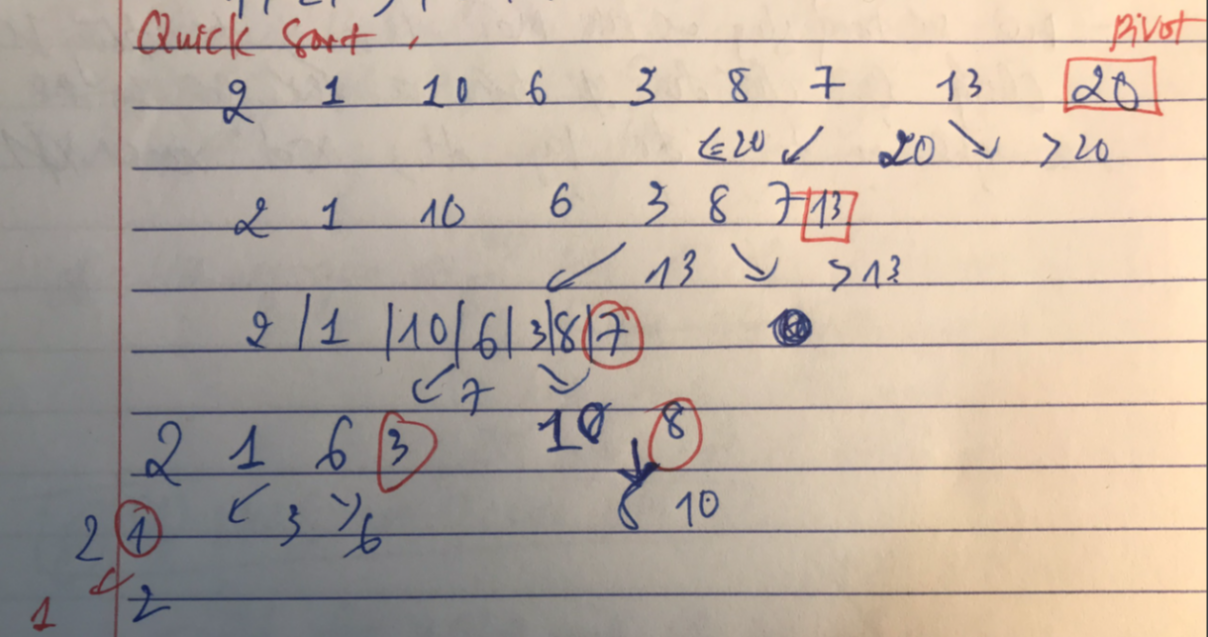 Quick Sort. pivot
2 1 10 6 3 8 7 13 20
≤20 ↙ 20 ↘ >20
2 1 10 6 3 8 7 13
↙ 13 ↘ >13
2 | 1 | 10 | 6 | 3 | 8 | 7
↙ 7 ↘
2 1 6 3 10 8
↙ 3 ↘ 6 ↓ 8 10
2 1
1 ↙ 2